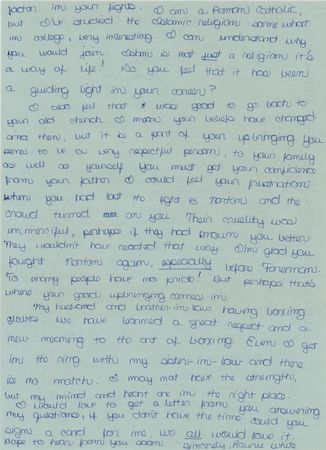 factor in your fights. I am a Roman Catholic,
but I've studied the Islamic religion some what
in college, very interesting. I can understand why
you would join. Islam is not just a religion it's
a way of life! Do you feel that it has been
a guiding light in your career?
I also feel that it was good to go back to
your old church. I mean your beliefs have changed
since then, but it is a part of your upbringing you
seem to be a very respectful person, to your family
as well as yourself you must get your confidence
from your father. I could feel your frustration
when you had lost the fight to Norton and the
crowd turned on you. Their cruelty was
unmerciful, perhaps if they had known you better
They wouldn't have reacted that way. I'm glad you
fought Norton again, especially before Foreman.
To many people have no pride! But perhaps that's
where your good upbringing comes in.
My husband and brother-in-law having boxing
gloves. We have learned a great respect and a
new meaning to the art of boxing. Even I get
in the ring with my sister-in-law and there
is no match. I may not have the strength,
but my mind and heart are in the right place.
I would love to get a letter from you answering
my questions, if you don't have the time could you
sign a card for me, we all would love it.
Hope to hear from you soon. Sincerely,